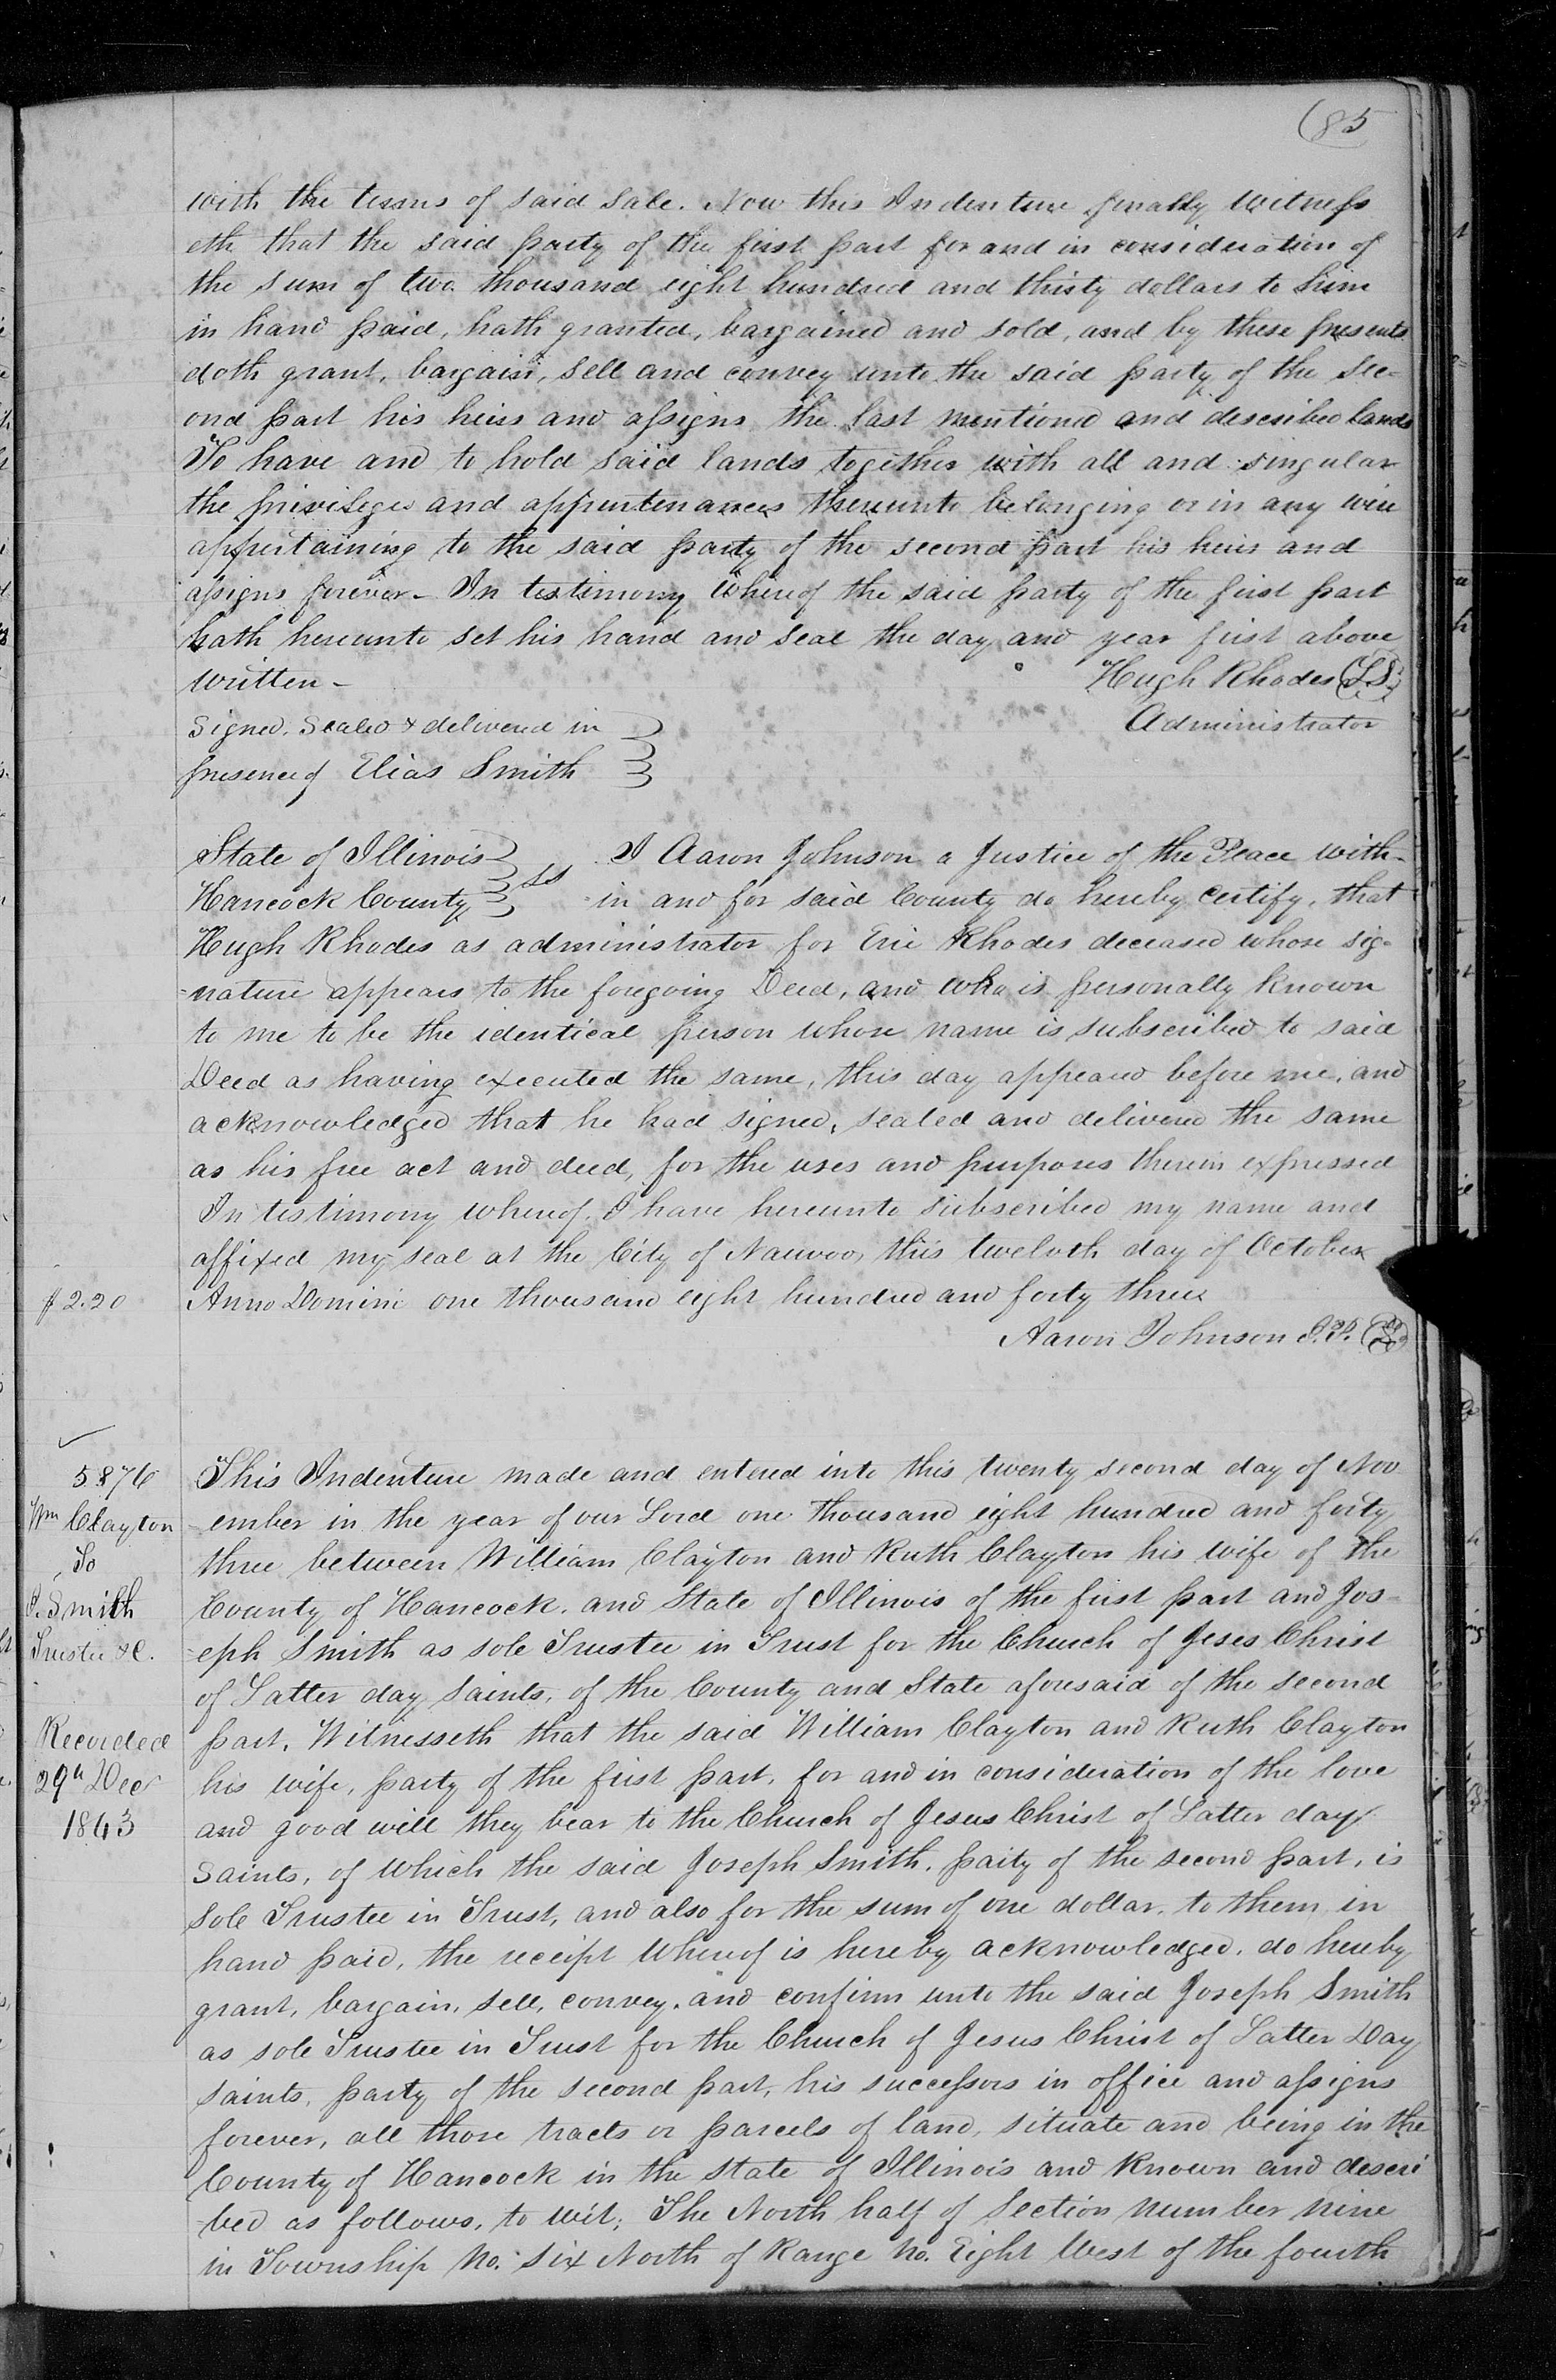 (85
with the terms of said sale. Now this Indenture finally witness
eth that the said party of the first part for and in consideration of
the sum of two thousand eight hundred and thirty dollars to him
in hand paid, hath granted, bargained and sold, and by these presents
doth grant, bargain, sell and convey unto the said party of the sec-
ond part his heirs and assigns the last mentioned and described lands
To have and to hold said lands together with all and singular
the privileges and appurtenances thereunto belonging or in any wise
appertaining to the said party of the second part his heirs and
assigns forever - In testimony whereof the said party of the first part
hath hereunto set his hand and seal the day and year first above
written - Hugh Rhodes (LS)
Signed, Sealed & delivered in Administrator
presence of Elias Smith
State of Illinois } ss I Aaron Johnson a Justice of the Peace with-
Hancock County } in and for said County do hereby certify, that
Hugh Rhodes as administrator for Erie Rhodes deceased whose sig-
-nature appears to the foregoing Deed, and who is personally known
to me to be the identical person whose name is subscribed to said
Deed as having executed the same, this day appeared before me, and
acknowledged that he had signed, sealed and delivered the same
as his free act and deed, for the uses and purposes therein expressed
In testimony whereof, I have hereunto subscribed my name and
affixed my seal at the City of Nauvoo, this twelvth day of October
$2.20 Anno Domini one thousand eight hundred and forty three
Aaron Johnson J.P.
5876 This Indenture made and entered into this twenty second day of Nov
Wm Clayton -ember in the year of our Lord one thousand eight hundred and forty
To three between William Clayton and Ruth Clayton his wife of the
J. Smith County of Hancock, and State of Illinois of the first part and Jos-
Trustee &c. -eph Smith as sole Trustee in Trust for the Church of Jeses Christ
of Latter day saints, of the County and State aforesaid of the second
Recorded part, Witnesseth that the said William Clayton and Ruth Clayton
29th Decr his wife, party of the first part, for and in consideration of the love
1843 and good will they bear to the Church of Jesus Christ of Latter day
Saints, of which the said Joseph Smith, party of the second part, is
Sole Trustee in Trust, and also for the sum of one dollar, to them in
hand paid, the receipt whereof is hereby acknowledged, do hereby
grant, bargain, sell, convey, and confirm unto the said Joseph Smith
as sole Trustee in Trust for the Church of Jesus Christ of Latter Day
saints, party of the second part, his successors in office and assigns
forever, all those tracts or parcels of land, situate and being in the
County of Hancock in the State of Illinois and known and descri
-bed as follows, to wit; The North half of Section number nine
in Township No. six North of Range No. Eight West of the fourth